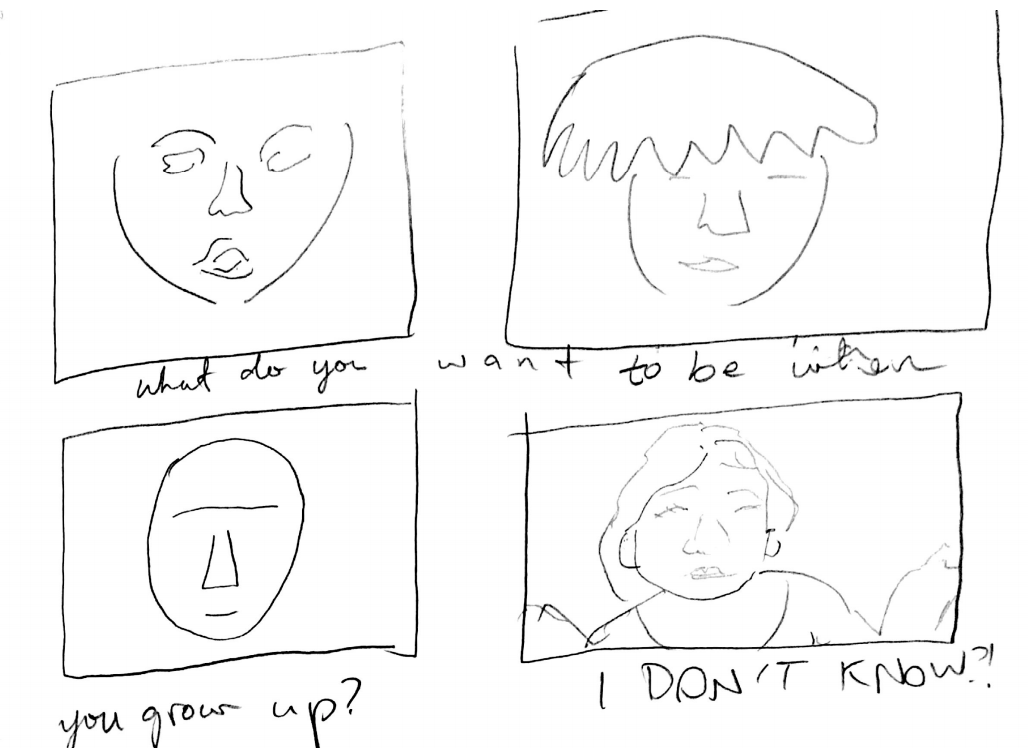 what do you want to be when
you grow up?
I DON'T KNOW?!